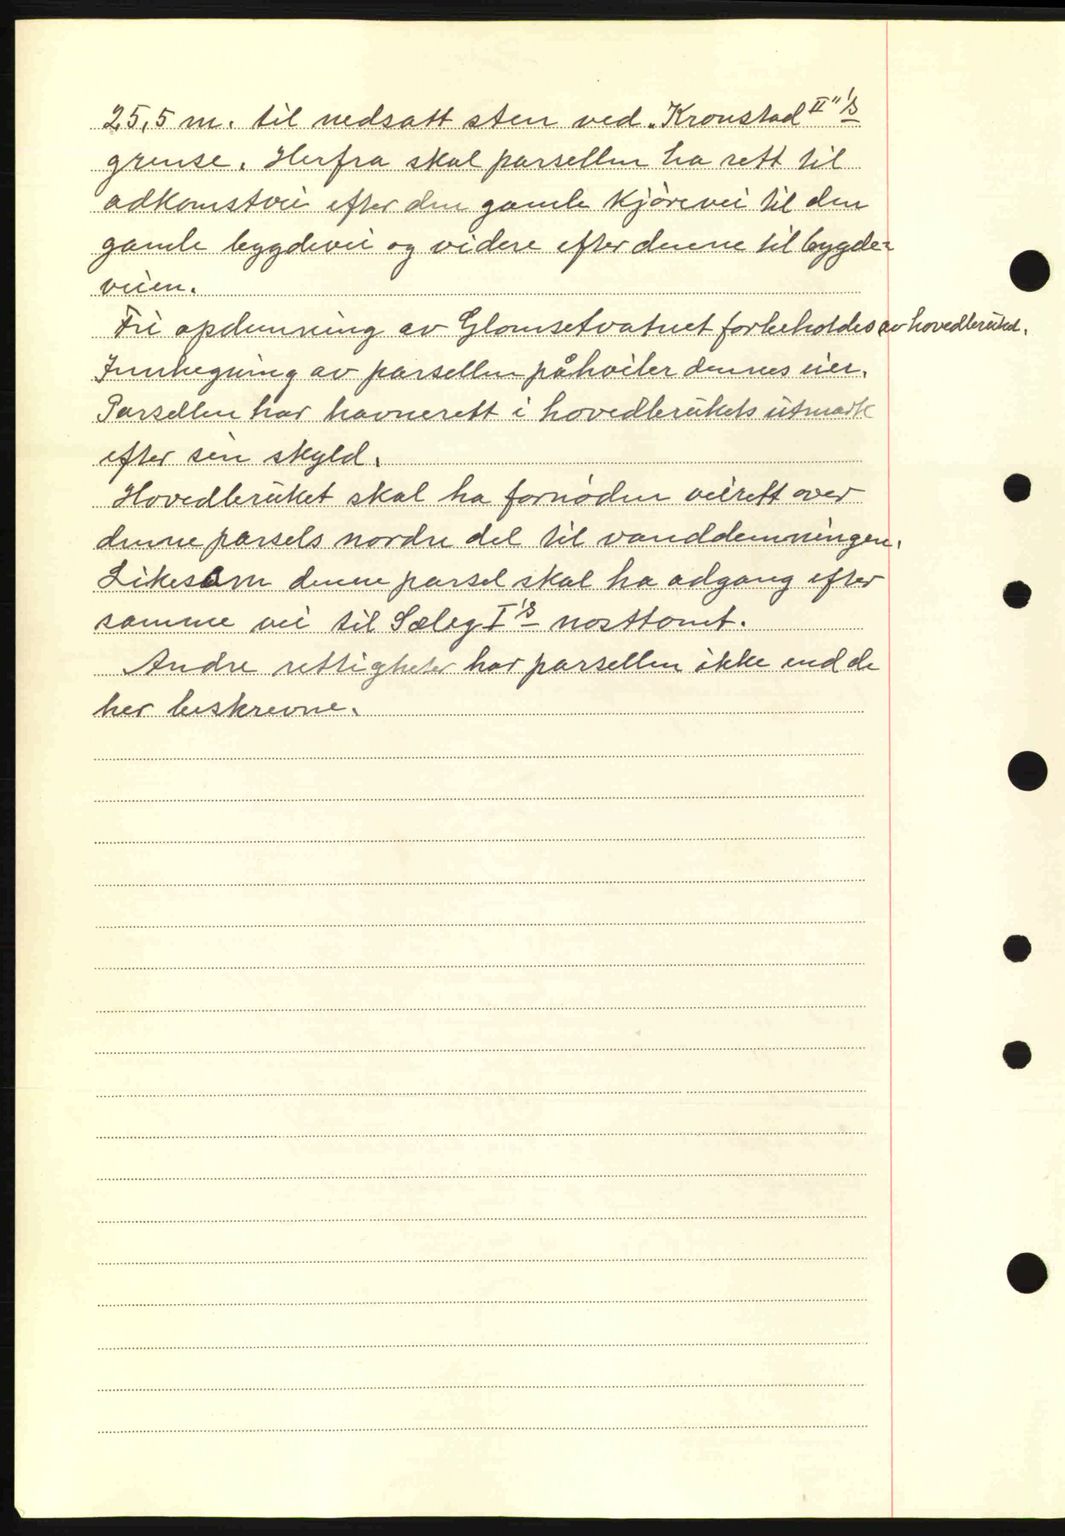 25,5 m. til nedsatt sten ved „Kronstad II"'s
grense. Herfra skal parsellen ha rett til
adkomstvei efter den gamle kjörevei til den
gamle bygdevei og videre efter denne til bygde-
veien.
Fri opdemning av Glomsetvatnet forbeholdes av hovedbruket.
Innhegning av parsellen påhviler dennes eier.
Parsellen har havnerett i hovedbrukets utmark
efter sin skyld.
Hovedbruket skal ha fornöden veirett over
denne parsels nordre del til vanddemningen.
Likesom denne parsel skal ha adgang efter
samme vei til Sæleg I's nosttomt.
Andre rettigheter har parsellen ikke end de
her beskrevne.